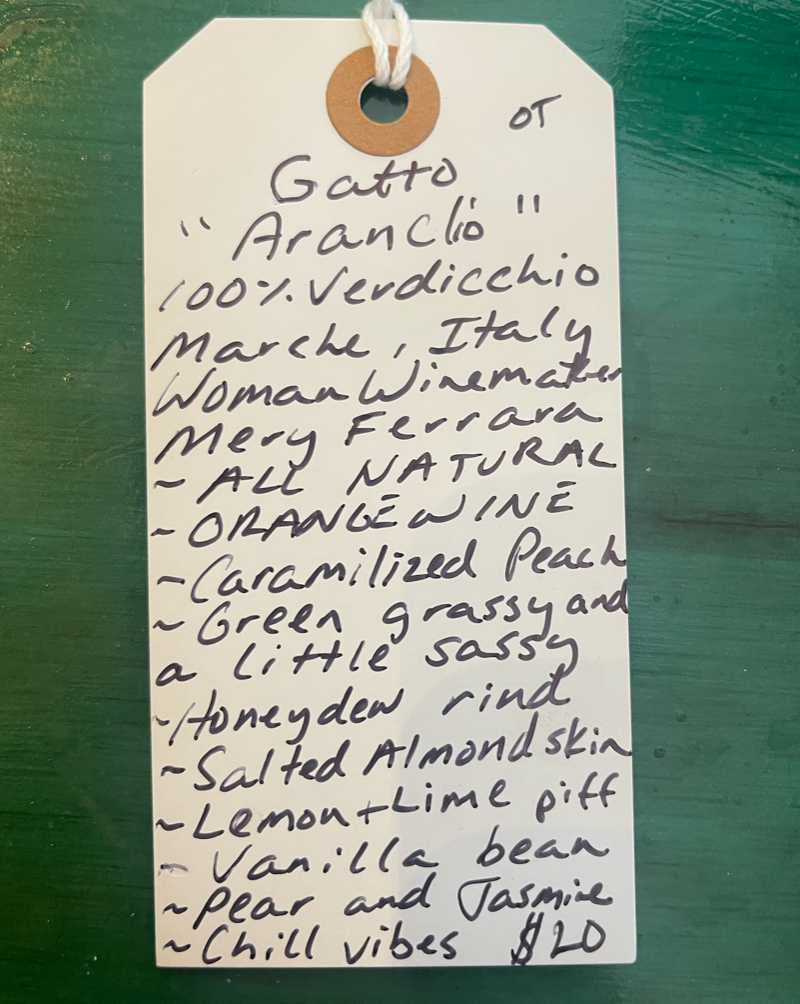 OT
Gatto
"Arancio"
100% Verdicchio
Marche, Italy
Woman Winemaker
Mery Ferrara
~ ALL NATURAL
~ ORANGE WINE
~ Caramilized Peach
~ Green grassy and
a little sassy
~ Honeydew rind
~ Salted Almond skin
~ Lemon + Lime piff
~ Vanilla bean
~ Pear and Jasmine
~ Chill vibes $20